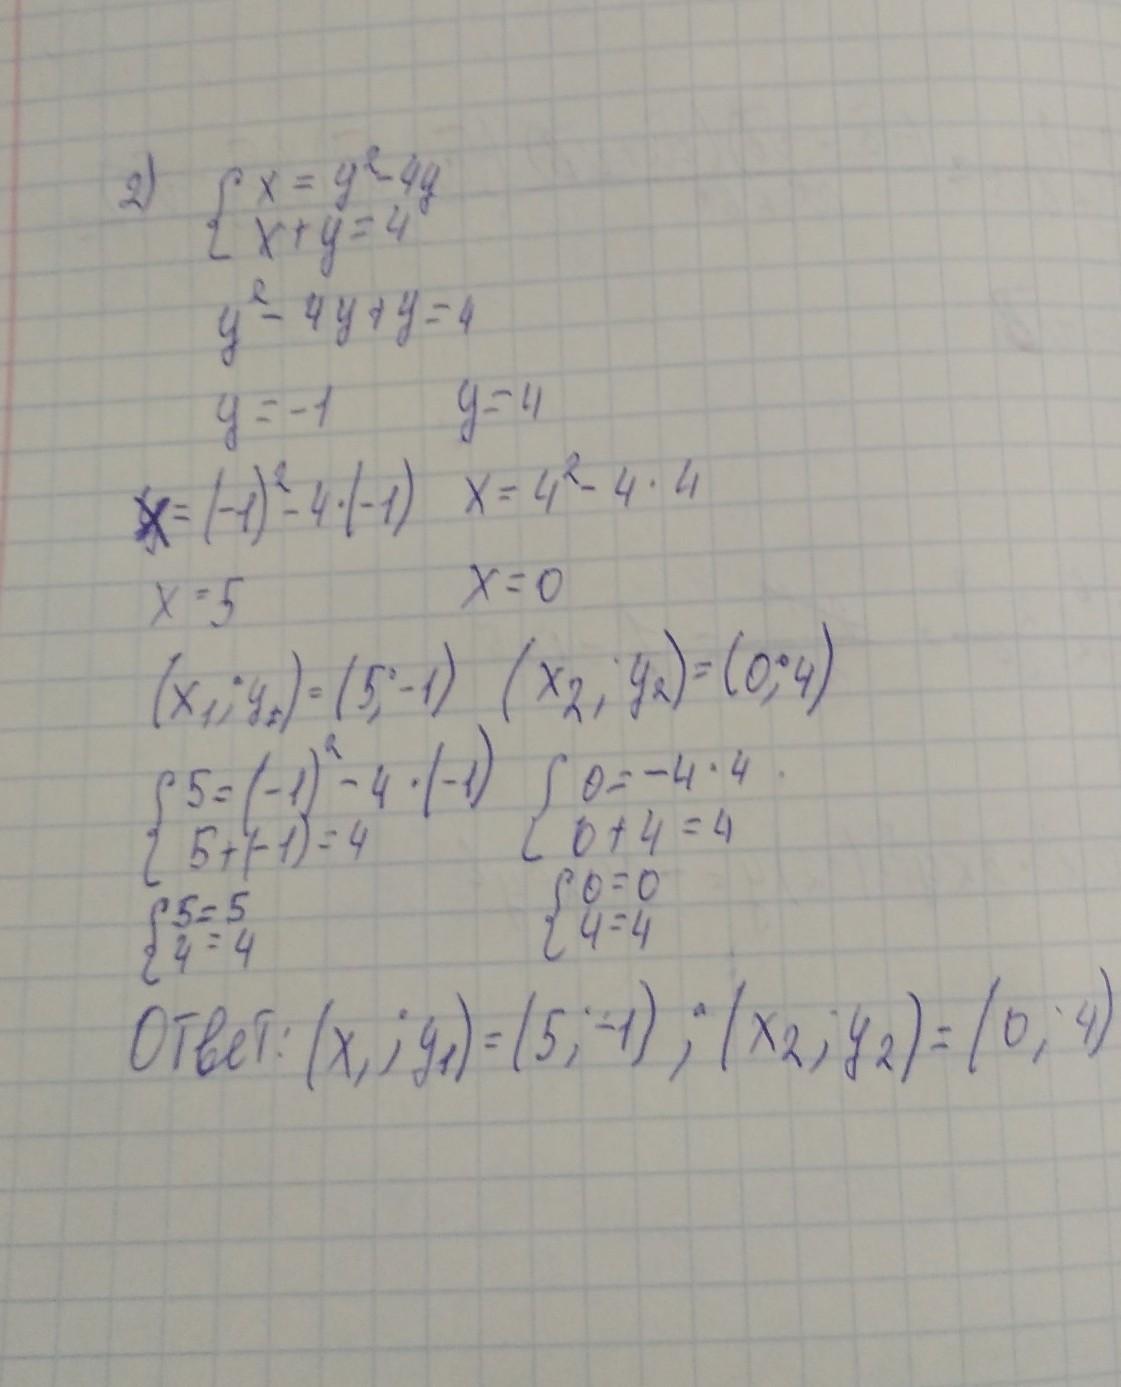 2) { x = y² - 4y
{ x + y = 4
y² - 4y + y = 4
y = -1 y = 4
x = (-1)² - 4·(-1) x = 4² - 4·4
x = 5 x = 0
(x₁; y₁) = (5; -1) (x₂; y₂) = (0; 4)
{ 5 = (-1)² - 4·(-1) { 0 = -4·4
{ 5 + (-1) = 4 { 0 + 4 = 4
{ 5 = 5 { 0 = 0
{ 4 = 4 { 4 = 4
Ответ: (x₁; y₁) = (5; -1); (x₂; y₂) = (0; 4)